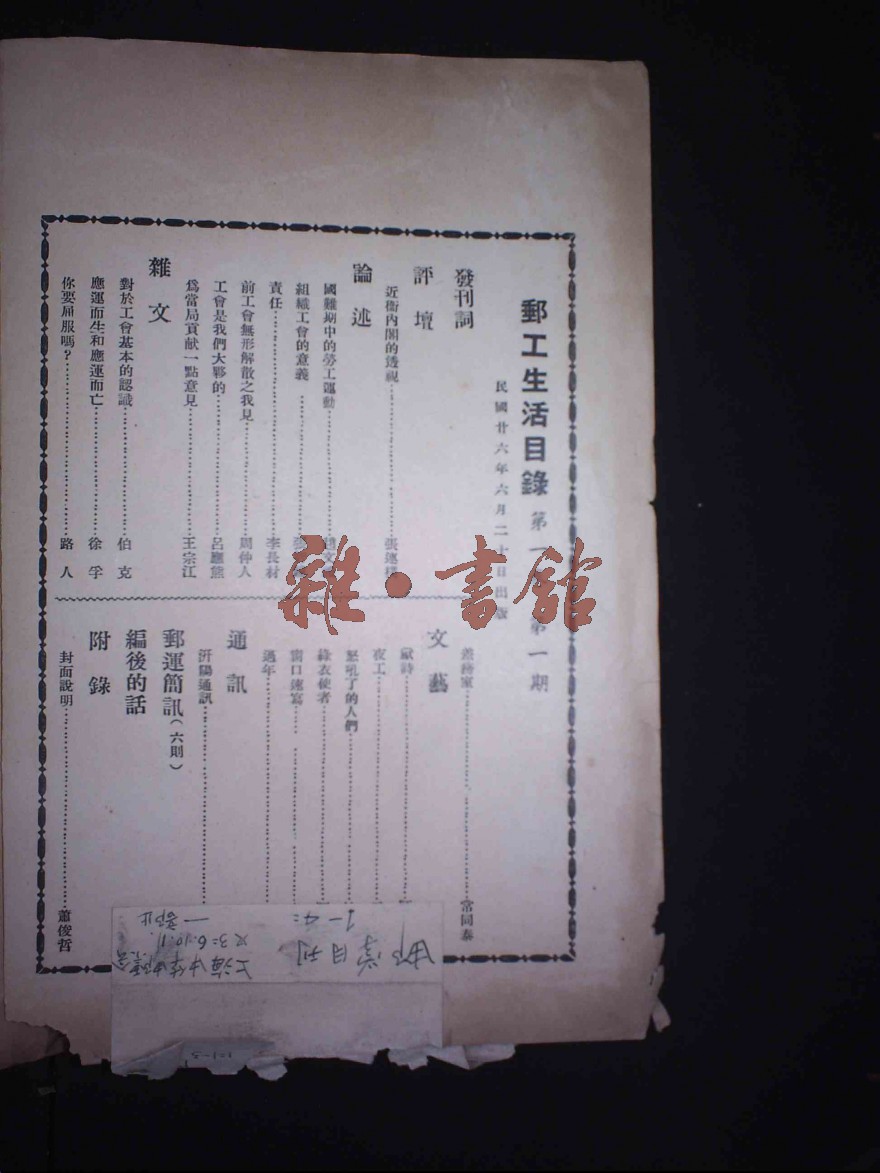 郵工生活目錄 第一 第一期
民國廿六年六月二十日出版
發刊詞
評壇
近衞內閣的透視……張
論述
國難期中的勞工運動……
組織工會的意義……
責任……李長材
前工會無形解散之我見……周仲人
工會是我們大夥的……呂應熊
爲當局貢献一點意見……王宗江
雜文
對於工會基本的認識……伯克
應運而生和應運而亡……徐孚
你要屈服嗎?……路人
……常同泰
文藝
……
夜工……
怒吼了的人們……
綠衣使者……
窗口速寫……
過年……
通訊
沂陽通訊……
郵運簡訊(六則)
編後的話
附錄
封面說明……蕭俊哲
雜·書館
月刊
1-4:
上海中華
又3=6.10.11.
一部止